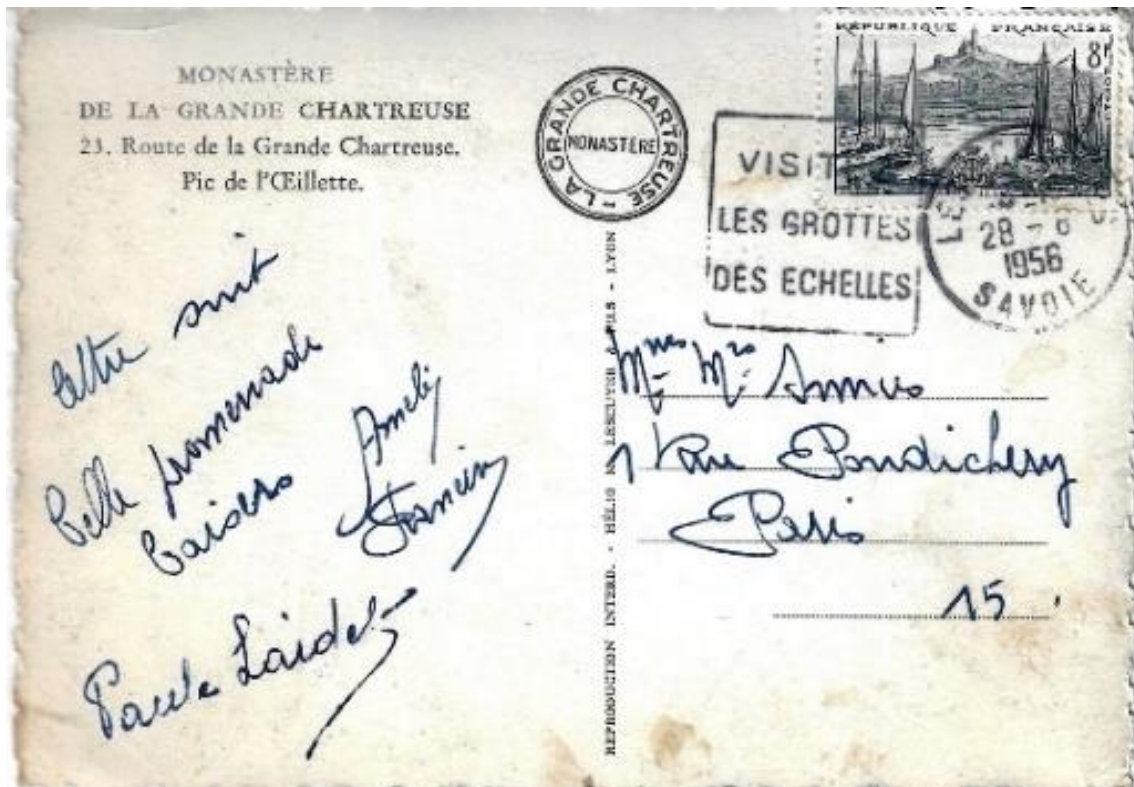 MONASTÈRE
DE LA GRANDE CHARTREUSE
23. Route de la Grande Chartreuse.
Pic de l'Œillette.
LA GRANDE CHARTREUSE
MONASTÈRE
RÉPUBLIQUE FRANÇAISE
8f
VISIT
LES GROTTES
DES ECHELLES
28 - 8
1956
SAVOIE
lettre suit
Belle promenade
baisers
Paule Laidet
REPRODUCTION INTERD. - HÉLIO LESCUYER & FILS - LYON
Mmes Mrs
1 rue Pondichery
Paris
15.